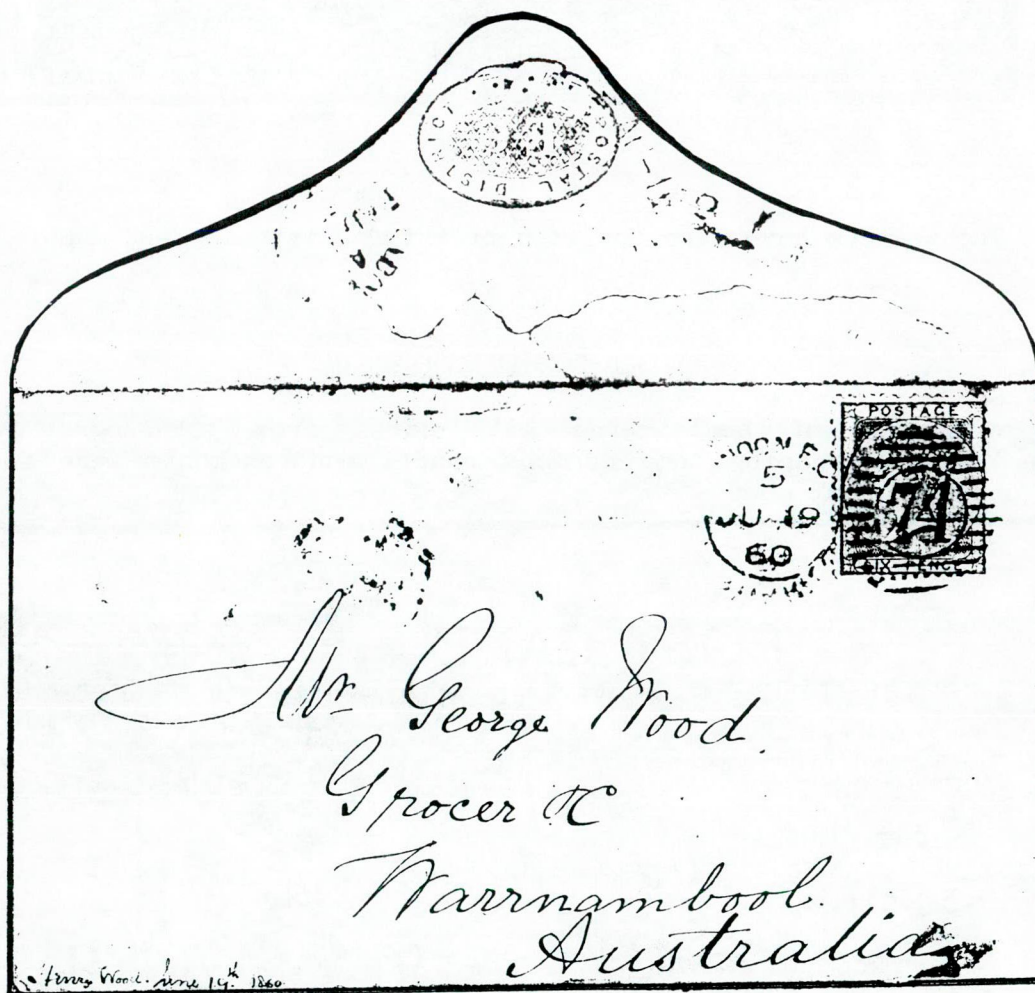 POSTAL DISTRIC
POSTAGE
5
JU 19
60
74
SIX PENCE
Mr George Wood.
Grocer &c
Warrnambool.
Australia
Henry Wood. June 19th 1860